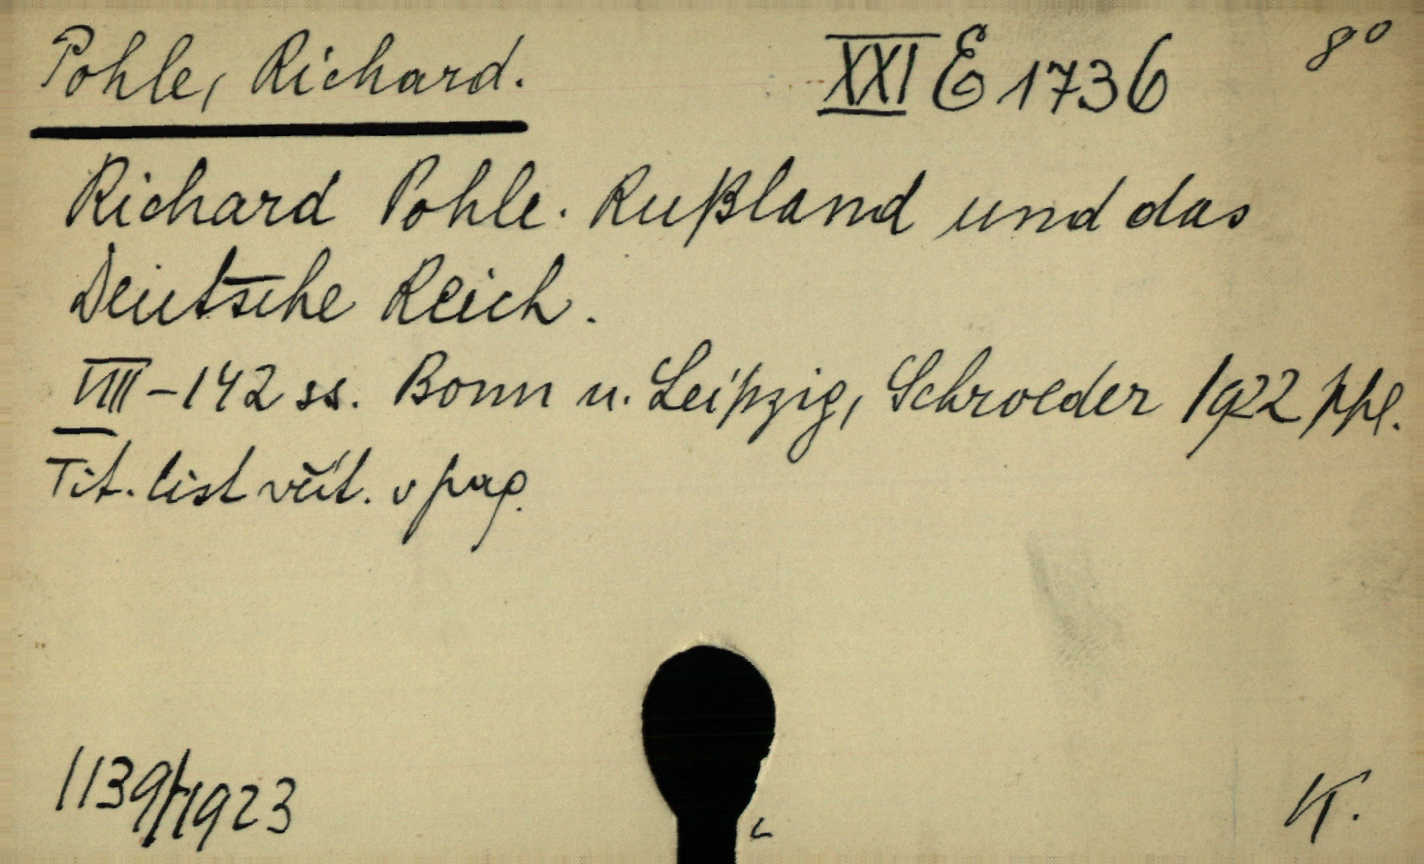 Pohle, Richard. XXI E 1736 8°
Richard Pohle. Rußland und das
Deutsche Reich.
VIII-142 ss. Bonn u. Leipzig, Schroeder 1922 ppl.
Tit. list včít. v pag.
1139/1923 K.